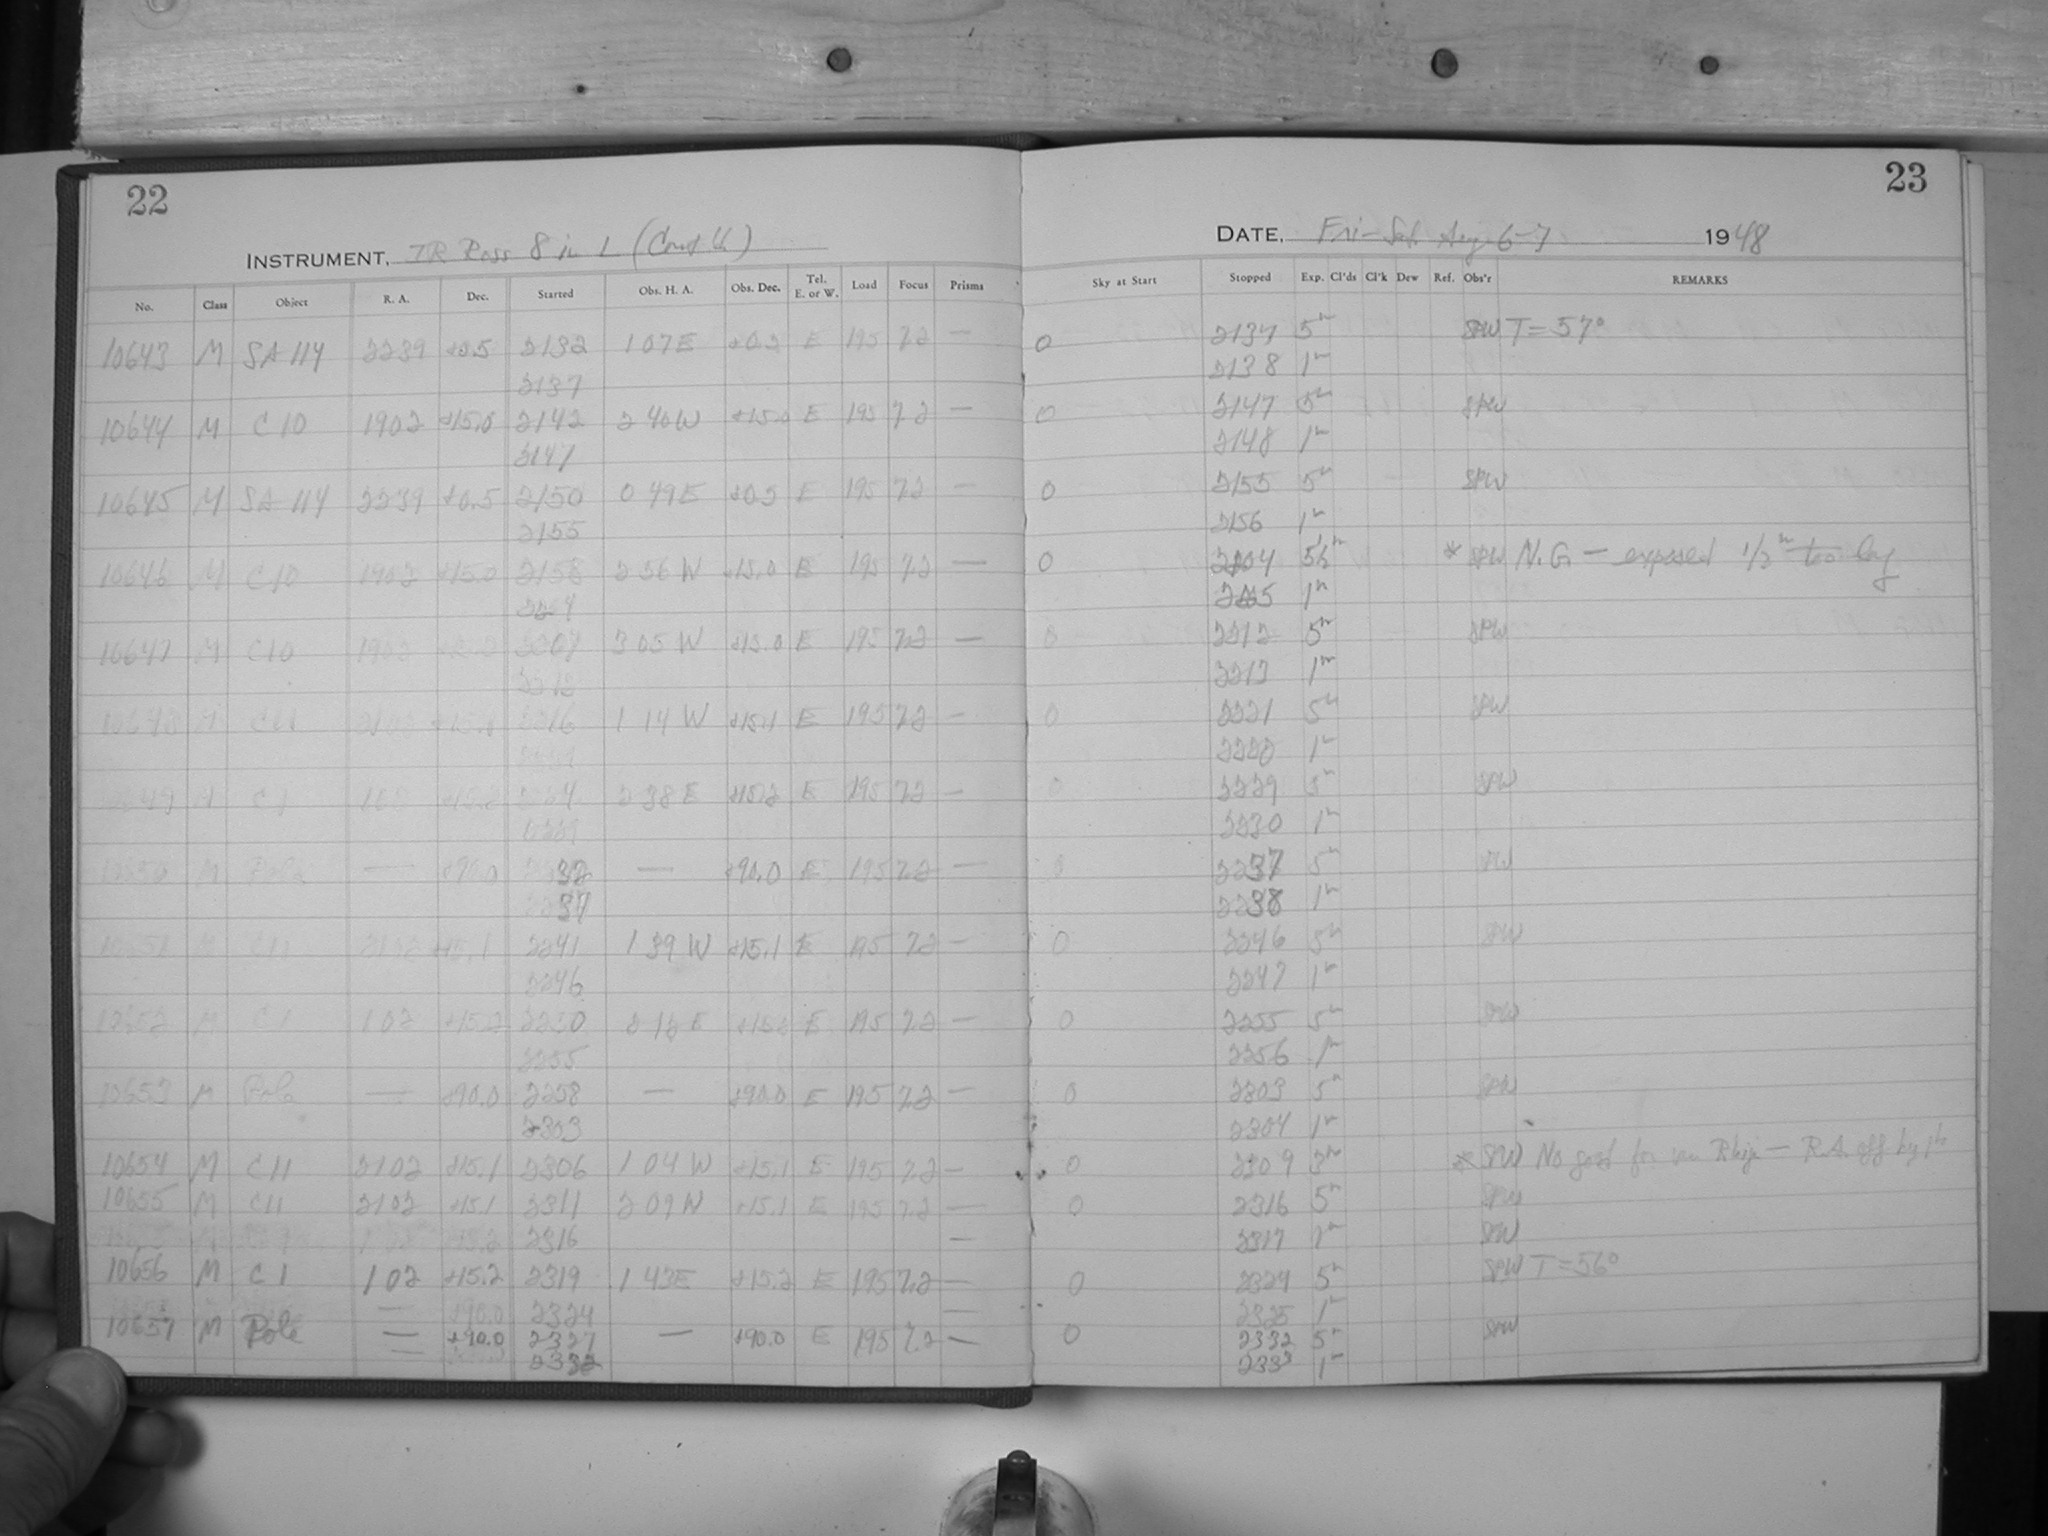 22
INSTRUMENT, IR Ross 8 in L (Cont'd)
No. Class Object R. A. Dec. Started Obs. H. A. Obs. Dec. Tel. E. or W. Load Focus Prisms
10643 M SA 114 2239 +0.5 2132 1 07 E +0.5 E 195 7.2 —
2137
10644 M C 10 1902 +15.0 2142 2 40 W +15.0 E 195 7.2 —
2147
10645 M SA 114 2239 +0.5 2150 0 49 E +0.5 E 195 7.2 —
2155
10646 M C 10 1902 +15.0 2158 2 56 W +15.0 E 195 7.2 —
2204
10647 M C 10 1902 2207 3 05 W +15.0 E 195 7.2 —
2212
10648 M C 11 2102 +15.1 2216 1 14 W +15.1 E 195 7.2 —
10649 M C 1 102 +15.2 2224 2 38 E +15.2 E 195 7.2 —
2229
10650 M Pole — +90.0 2232 — +90.0 E 195 7.2 —
2237
10651 M C 11 2102 +15.1 2241 1 39 W +15.1 E 195 7.2 —
2246
10652 M C 1 102 +15.2 2250 2 12 E +15.2 E 195 7.2 —
2255
10653 M Pole — +90.0 2258 — +90.0 E 195 7.2 —
2303
10654 M C 11 2102 +15.1 2306 1 04 W +15.1 E 195 7.2 —
10655 M C 11 2102 +15.1 2311 2 09 W +15.1 E 195 7.2 —
2316 —
10656 M C 1 102 +15.2 2319 1 43 E +15.2 E 195 7.2 —
— +90.0 2324 —
10657 M Pole — +90.0 2327 — +90.0 E 195 7.2 —
2332
23
DATE, Fri-Sat Aug 6-7 1948
Sky at Start Stopped Exp. Cl'ds Cl'k Dew Ref. Obs'r REMARKS
0 2137 5m SPW T = 57°
2138 1m
0 2147 5m SPW
2148 1m
0 2155 5m SPW
2156 1m
0 2204 5½m * SPW N.G. — exposed 1/2m too long
2205 1m
0 2212 5m SPW
2213 1m
0 2221 5m SPW
2220 1m
0 2229 5m SPW
2230 1m
0 2237 5m SPW
2238 1m
0 2246 5m SPW
2247 1m
0 2255 5m SPW
2256 1m
0 2303 5m SPW
2304 1m
0 2309 3m * SPW No good for — R.A. off by 1h
0 2316 5m SPW
2317 1m SPW
0 2324 5m SPW T = 56°
2325 1m
0 2332 5m SPW
2333 1m